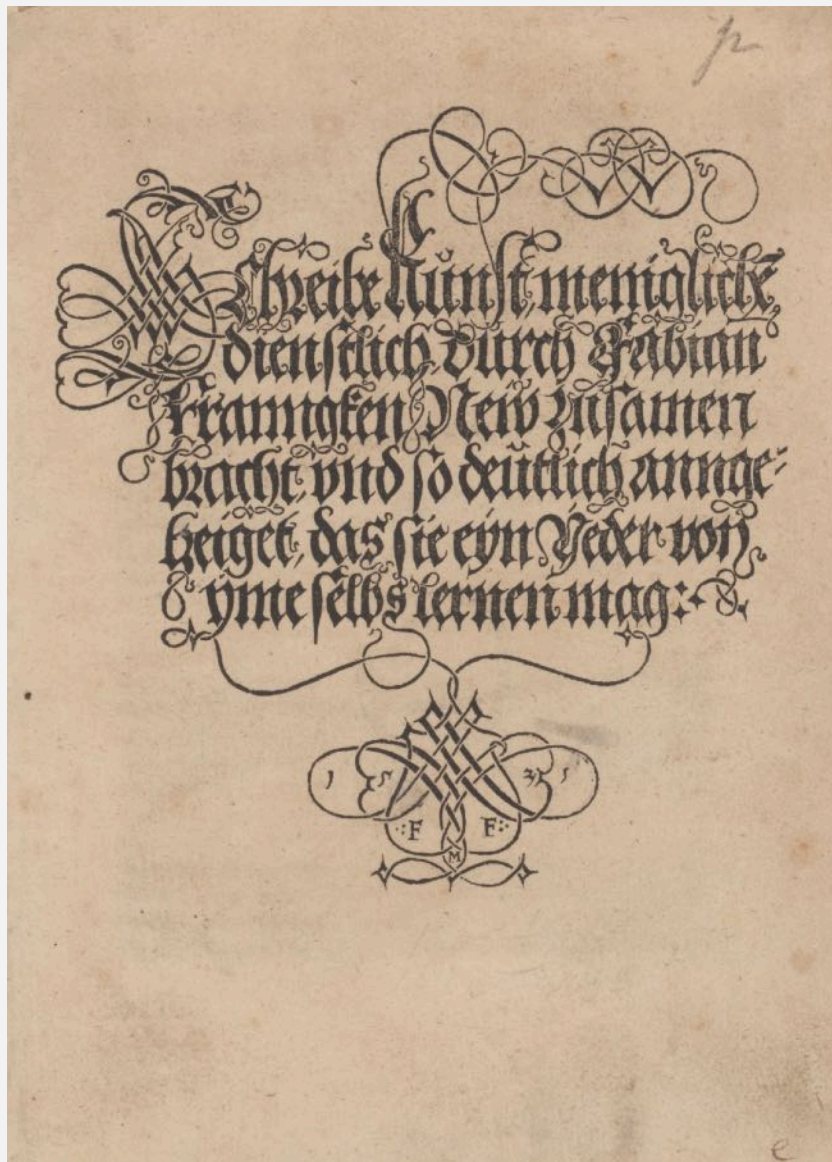 Schreibe Kunst, meniglichē
dienstlich, durch Fabian
Franngken, New zusamen
bracht, vnd so deůtlich annge-
zeiget, das sie eyn Yeder von
yme selbs lernen mag:
1 5 3 1
F F
M
e